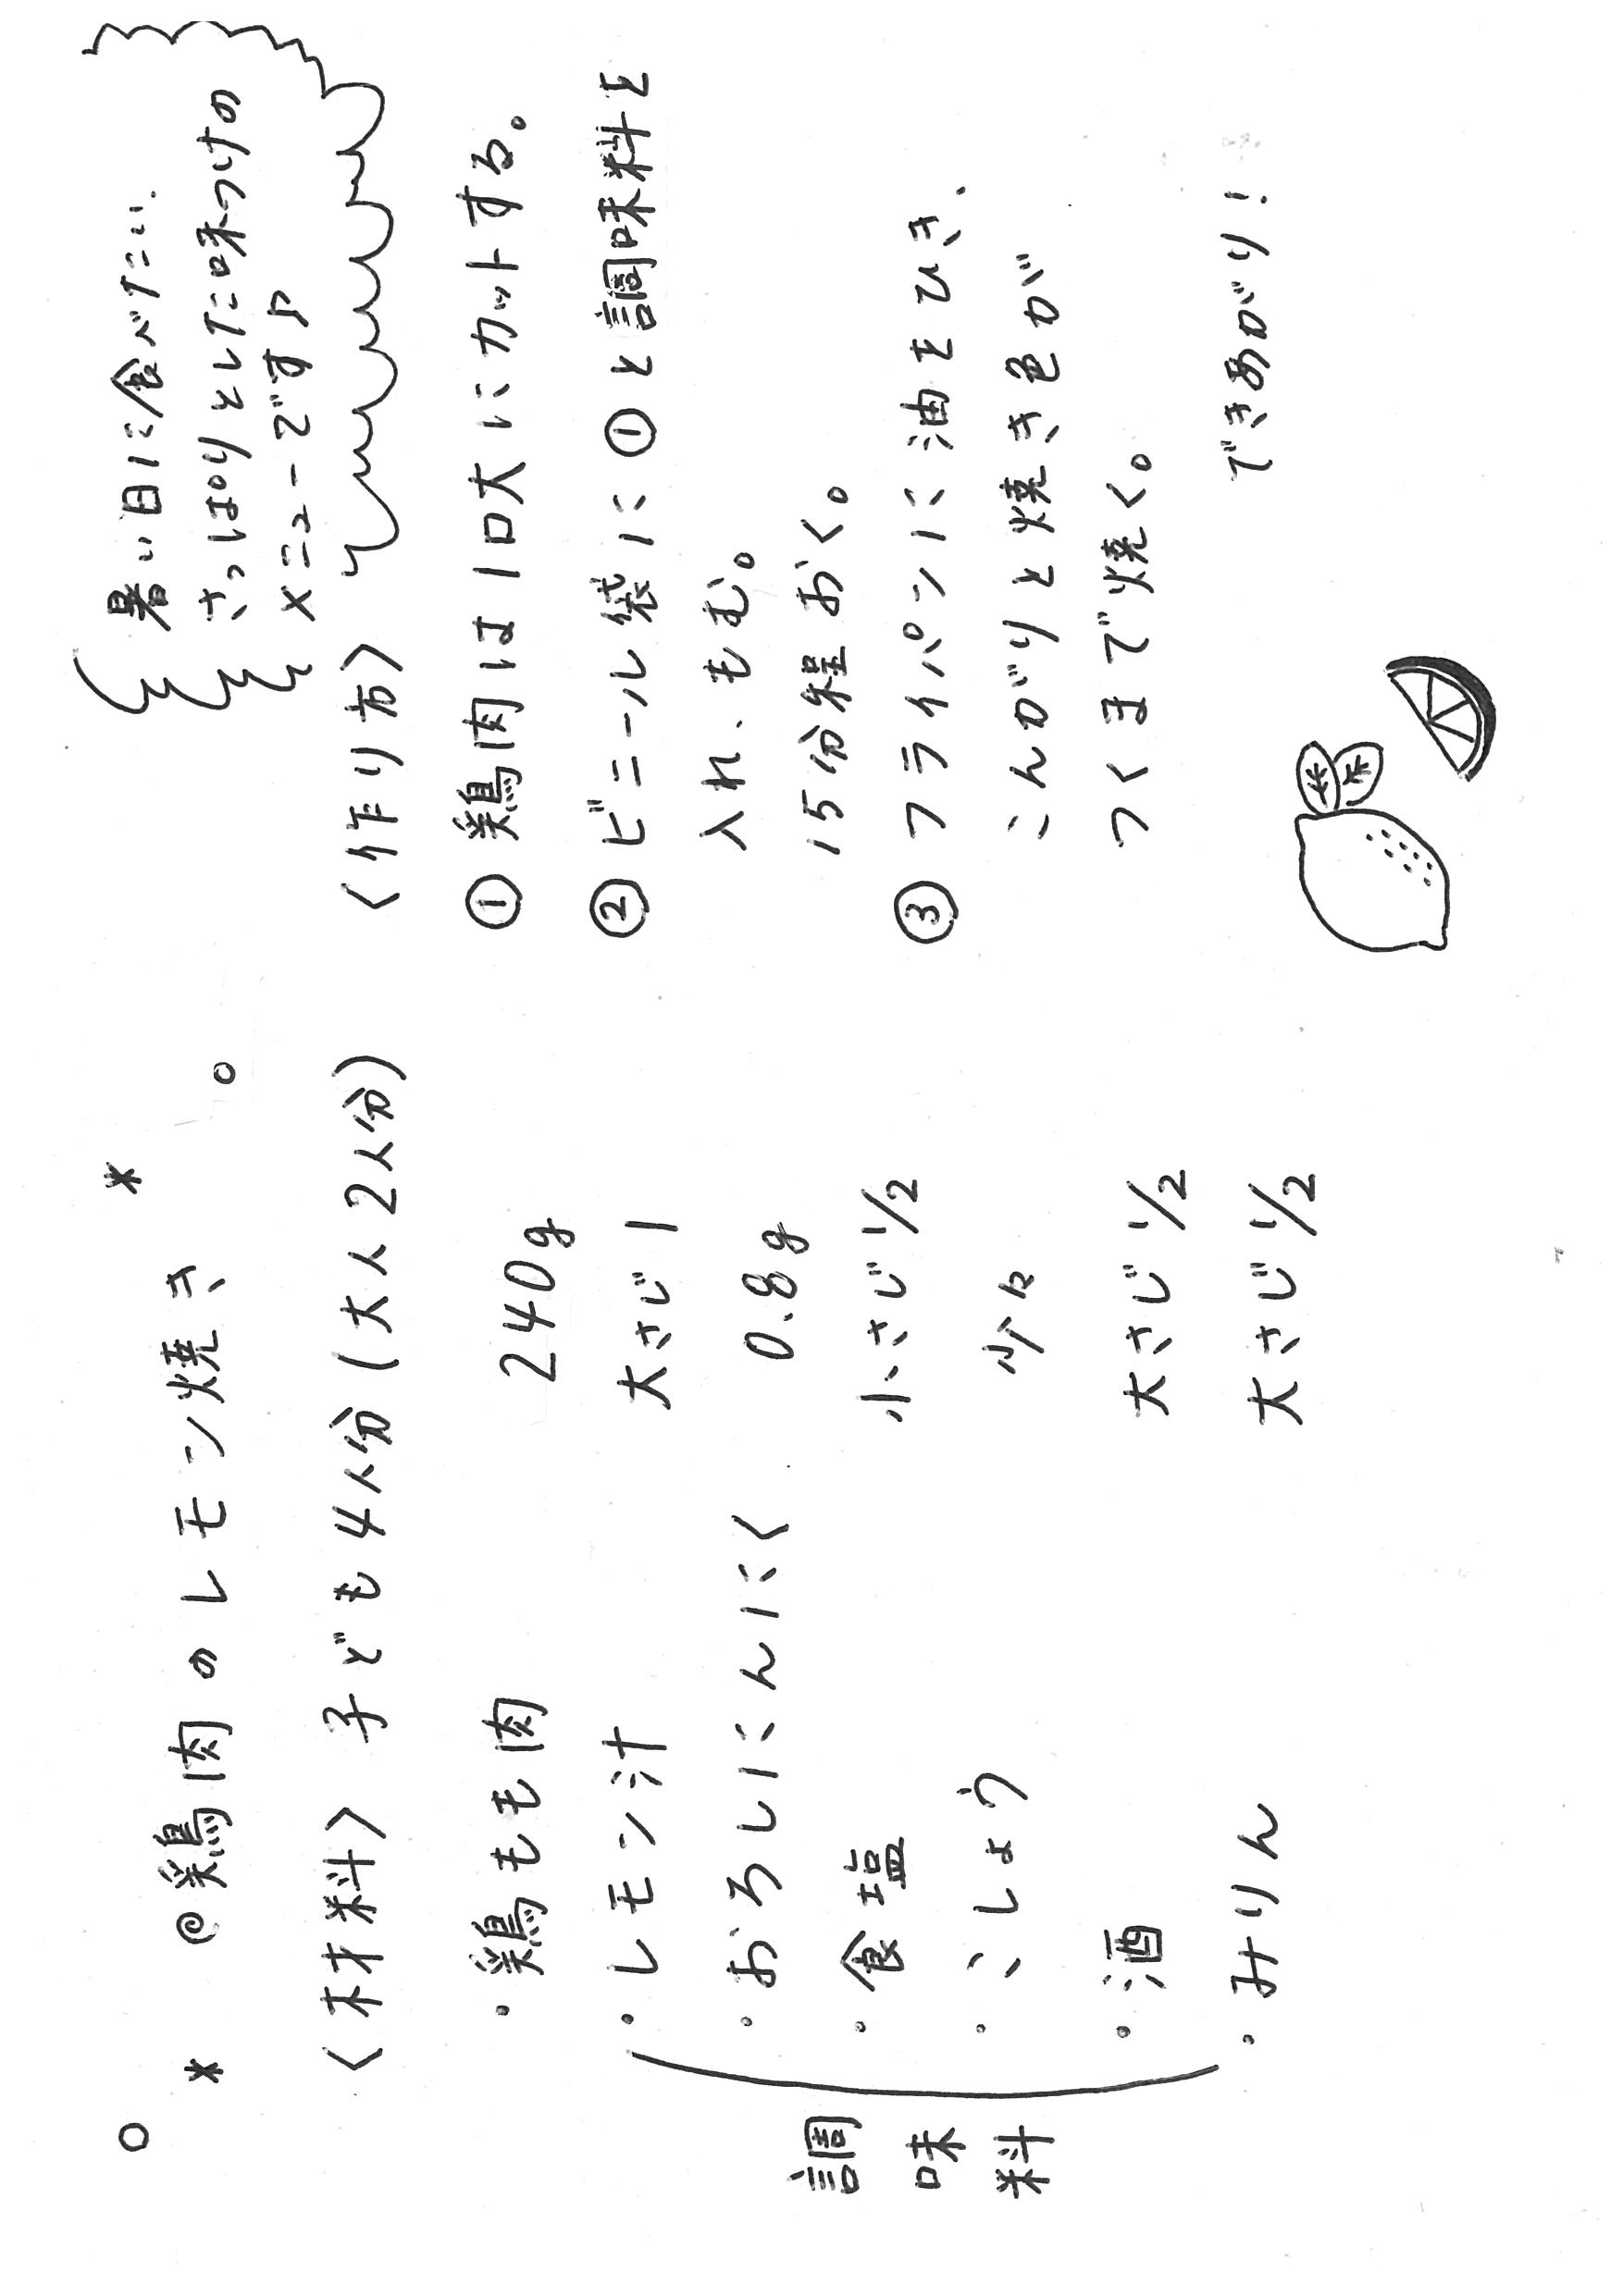 @鶏肉のレモン焼き
<材料> 子ども4人分 (大人2人分)
・鶏もも肉 240g
・レモン汁 大さじ1
・おろしにんにく 0.8g
・食塩 小さじ1/2
・こしょう 少々
・酒 大さじ1/2
・みりん 大さじ1/2
調味料
暑い日に食べたい、
さっぱりとした味つけの
メニューです♪
<作り方>
① 鶏肉は1口大にカットする。
② ビニール袋に①と調味料を
入れ、もむ。
15分程おく。
③ フライパンに油をひき、
こんがりと焼き色が
つくまで焼く。
できあがり!